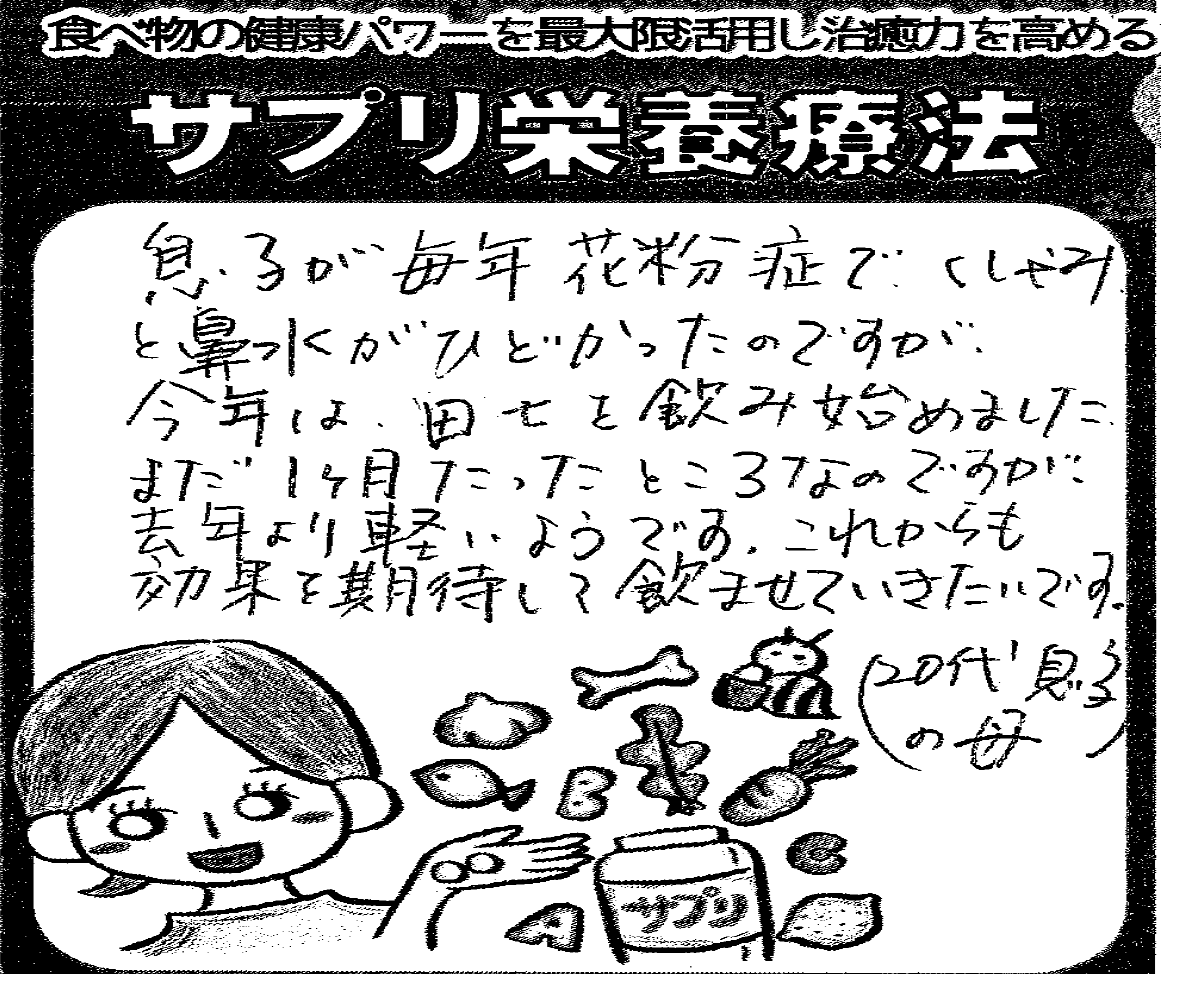 食べ物の健康パワーを最大限活用し治癒力を高める
サプリ栄養療法
息子が毎年花粉症で、くしゃみ
と鼻水がひどかったのですが、
今年は、田七を飲み始めました。
まだ1ヶ月たったところなのですが、
去年より軽いようです。これからも
効果を期待して飲ませていきたいです。
(20代 息子
の母)
B
C
A
サプリ